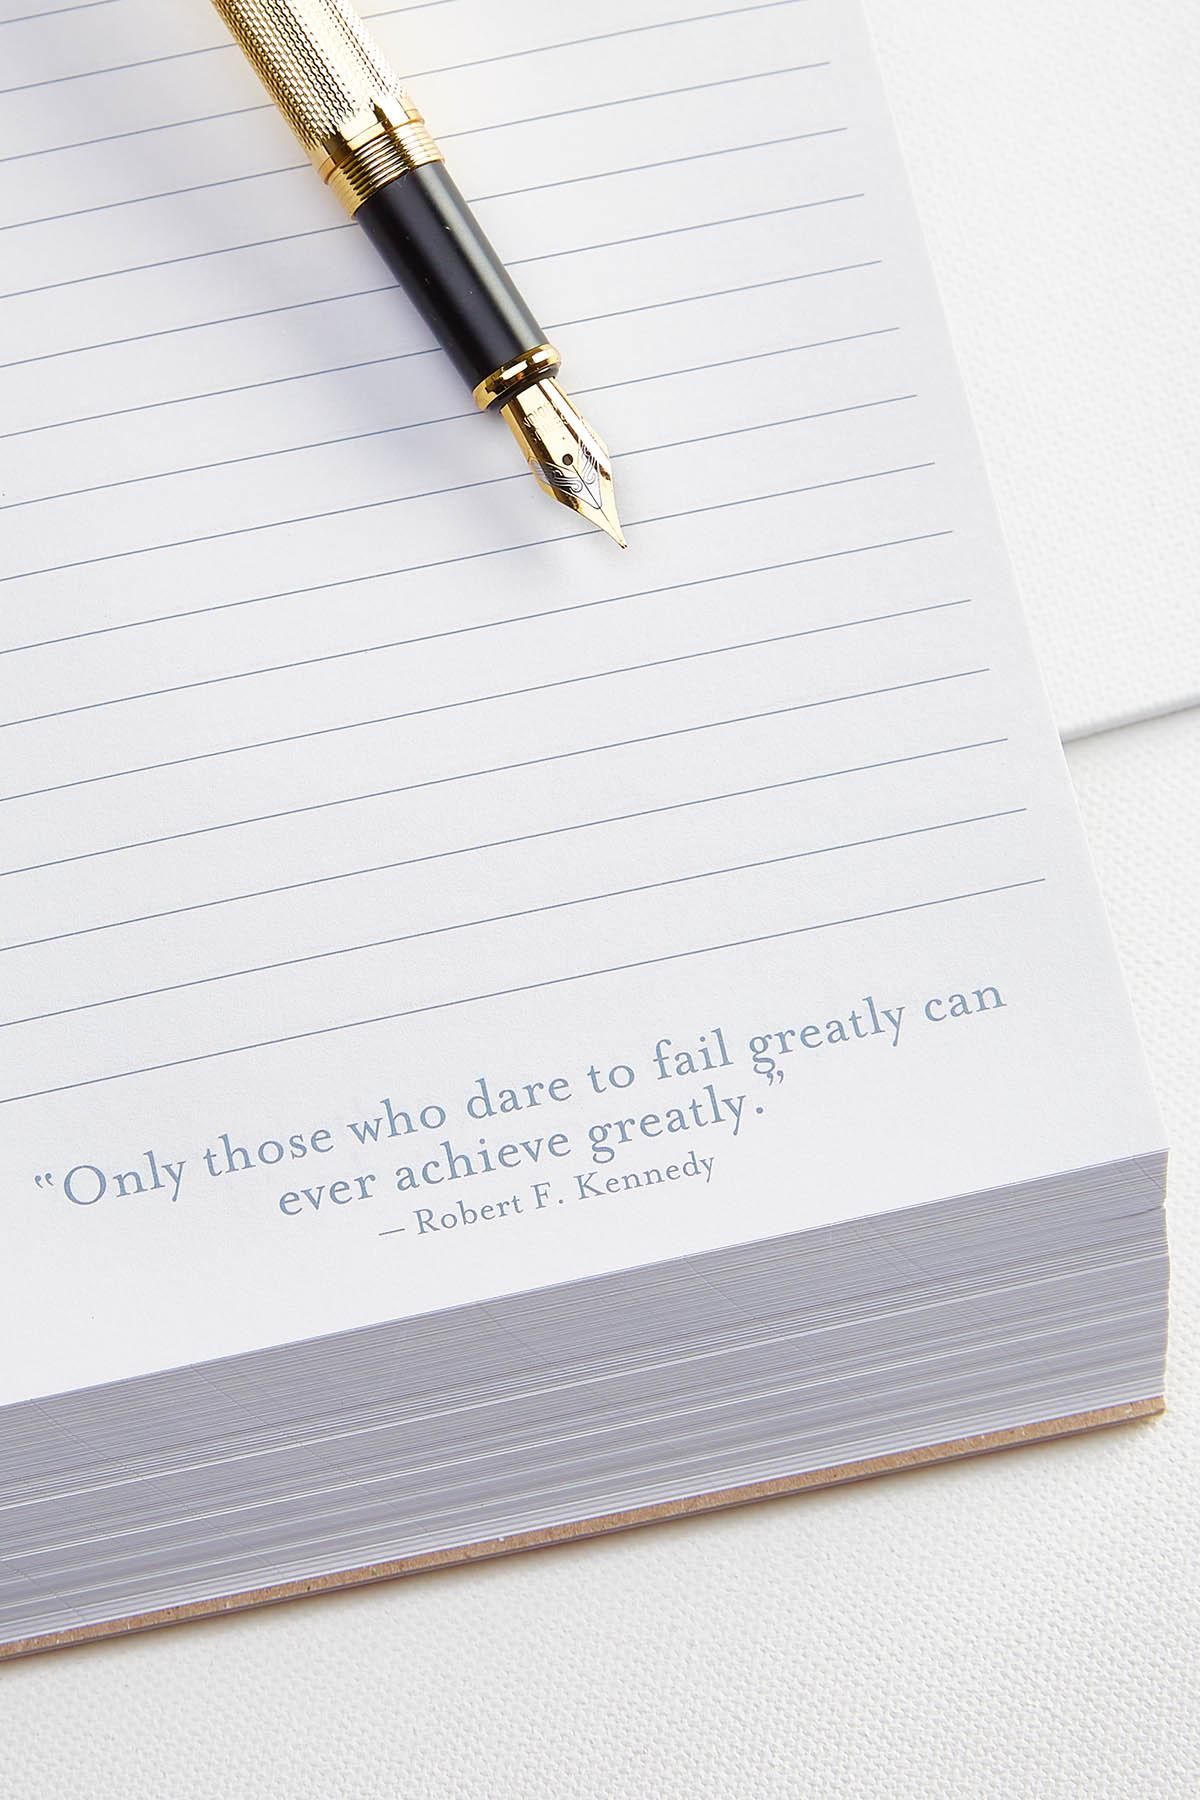 “Only those who dare to fail greatly can
ever achieve greatly.”
— Robert F. Kennedy